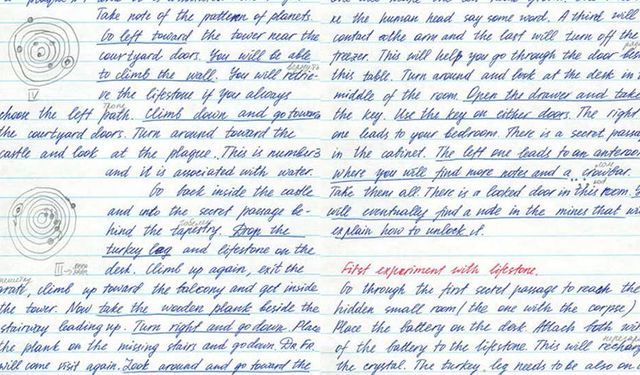 Take note of the pattern of planets.
Go left toward the tower near the
courtyard doors. You will be able
to climb the wall. You will retrie-
ve the lifestone if you always
V
choose the left path. Climb down and go towards
the courtyard doors. Turn around toward the
castle and look at the plaque. This is number 3
and it is associated with water.
Go back inside the castle
and into the secret passage be-
hind the tapestry. Drop the
turkey leg and lifestone on the
III
desk. Climb up again, exit the
climb up toward the balcony and get inside
the tower. Now take the wooden plank beside the
stairway leading up. Turn right and go down. Place
the plank on the missing stairs and go down. Dr. Fr.
will come visit again. Look around and go toward the
the human head say some word. A third will
contact the arm and the last will turn off the
freezer. This will help you go through the door
this table. Turn around and look at the desk in
middle of the room. Open the drawer and take
the key. Use the key on either doors. The right
one leads to your bedroom. There is a secret
in the cabinet. The left one leads to an
where you will find more notes and a crowbar.
Take them all. There is a locked door in this room.
will eventually find a note in the mines that
explain how to unlock it.
First experiment with lifestone.
Go through the first secret passage to reach the
hidden small room (the one with the corpse).
Place the battery on the desk. Attach both
of the battery to the lifestone. This will
the crystal. The turkey leg needs to be also on